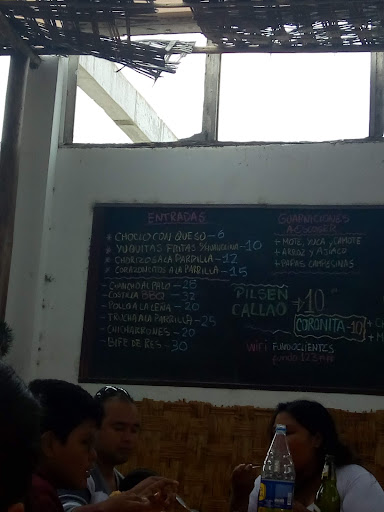 ENTRADAS
* CHOCLO CON QUESO - 6
* YUQUITAS FRITAS S/HUANCAINA - 10
* CHORIZOS A LA PARRILLA - 12
* CORAZONCITOS A LA PARRILLA - 15
- CHANCHO AL PALO - 28
- COSTILLA BBQ - 32
- POLLO A LA LEÑA - 20
- TRUCHA A LA PARRILLA - 25
- CHICHARRONES - 20
- BIFE DE RES - 30
GUARNICIONES
A ESCOGER
+ MOTE, YUCA Y CAMOTE
+ ARROZ Y
+ PAPAS CAMPESINAS
PILSEN
CALLAO
10
CORONITA - 10
WIFI FUNDOCLIENTES